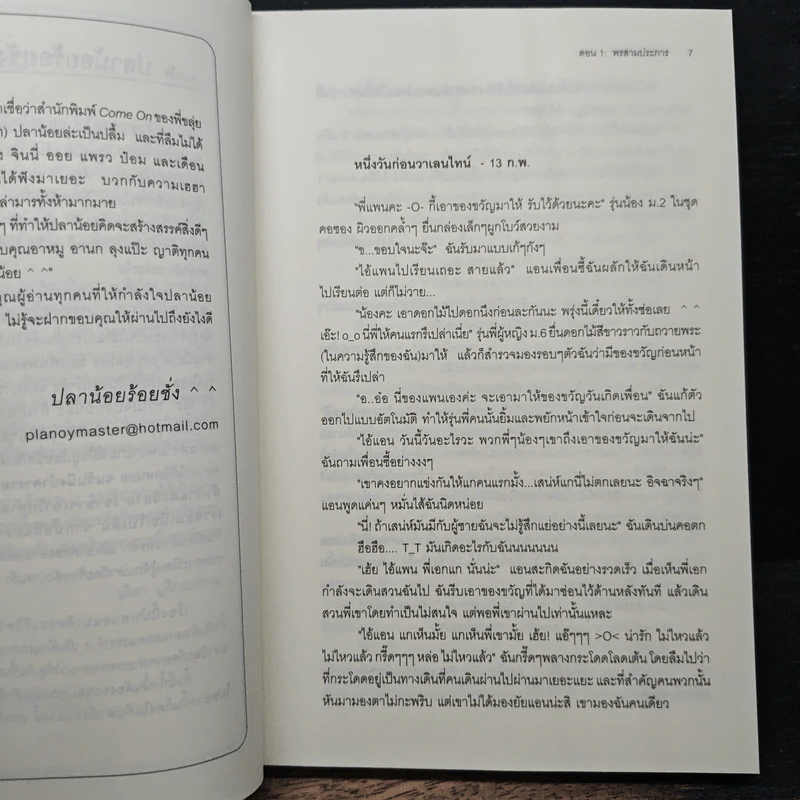 าเชื่อว่าสำนักพิมพ์ Come On ของพี่ขลุ่ย
) ปลาน้อยล่ะเป็นปลื้ม และที่ลืมไม่ได้
จินนี่ ออย แพรว ป๋อม และเดือน
ได้ฟังมาเยอะ บวกกับความเฮฮา
ล่ามารทั้งห้ามากมาย
ๆ ที่ทำให้ปลาน้อยคิดจะสร้างสรรค์สิ่งดีๆ
บคุณอาหมู อานก ลุงแป๊ะ ญาติทุกคน
น้อย ^ ^"
คุณผู้อ่านทุกคนที่ให้กำลังใจปลาน้อย
ไม่รู้จะฝากขอบคุณให้ผ่านไปถึงยังไงดี
ปลาน้อยร้อยชั่ง ^ ^
planoymaster@hotmail.com
ตอน 1: พรสามประการ 7
หนึ่งวันก่อนวาเลนไทน์ - 13 ก.พ.
"พี่แพนคะ -O- กี้เอาของขวัญมาให้ รับไว้ด้วยนะคะ" รุ่นน้อง ม.2 ในชุด
คอซอง ผิวออกคล้ำๆ ยื่นกล่องเล็กๆผูกโบว์สวยงาม
"ข...ขอบใจนะจ๊ะ" ฉันรับมาแบบเก้ๆกังๆ
"ไอ้แพนไปเรียนเถอะ สายแล้ว" แอนเพื่อนซี้ฉันผลักให้ฉันเดินหน้า
ไปเรียนต่อ แต่ก็ไม่วาย...
"น้องคะ เอาดอกไม้ไปดอกนึงก่อนละกันนะ พรุ่งนี้เดี๋ยวให้ทั้งช่อเลย ^ ^
เอ๊ะ! o_o นี่พี่ให้คนแรกรึเปล่าเนี่ย" รุ่นพี่ผู้หญิง ม.6 ยื่นดอกไม้สีขาวราวกับถวายพระ
(ในความรู้สึกของฉัน)มาให้ แล้วก็สำรวจมองรอบๆตัวฉันว่ามีของขวัญก่อนหน้า
ที่ให้ฉันรึเปล่า
"อ..อ๋อ นี่ของแพนเองค่ะ จะเอามาให้ของขวัญวันเกิดเพื่อน" ฉันแก้ตัว
ออกไปแบบอัตโนมัติ ทำให้รุ่นพี่คนนั้นยิ้มและพยักหน้าเข้าใจก่อนจะเดินจากไป
"ไอ้แอน วันนี้วันอะไรวะ พวกพี่ๆน้องๆเขาถึงเอาของขวัญมาให้ฉันน่ะ"
ฉันถามเพื่อนซี้อย่างงงๆ
"เขาคงอยากแข่งกันให้แกคนแรกมั้ง...เสน่ห์แกนี่ไม่ตกเลยนะ อิจฉาจริงๆ"
แอนพูดแค่นๆ หมั่นไส้ฉันนิดหน่อย
"นี่! ถ้าเสน่ห์มันมีกับผู้ชายฉันจะไม่รู้สึกแย่อย่างนี้เลยนะ" ฉันเดินบ่นคอตก
ฮือฮือ.... T_T มันเกิดอะไรกับฉันนนนนนน
"เฮ้ย ไอ้แพน พี่เอกแก นั่นน่ะ" แอนสะกิดฉันอย่างรวดเร็ว เมื่อเห็นพี่เอก
กำลังจะเดินสวนฉันไป ฉันรีบเอาของขวัญที่ได้มาซ่อนไว้ด้านหลังทันที แล้วเดิน
สวนพี่เขาโดยทำเป็นไม่สนใจ แต่พอพี่เขาผ่านไปเท่านั้นแหละ
"ไอ้แอน แกเห็นมั้ย แกเห็นพี่เขามั้ย เฮ้ย! แอ๊ๆๆๆ >O< น่ารัก ไม่ไหวแล้ว
ไม่ไหวแล้ว กรี๊ดๆๆๆ หล่อ ไม่ไหวแล้ว" ฉันกรี๊ดๆพลางกระโดดโลดเต้น โดยลืมไปว่า
ที่กระโดดอยู่เป็นทางเดินที่คนเดินผ่านไปผ่านมาเยอะแยะ และที่สำคัญคนพวกนั้น
หันมามองตาไม่กะพริบ แต่เขาไม่ได้มองยัยแอนน่ะสิ เขามองฉันคนเดียว